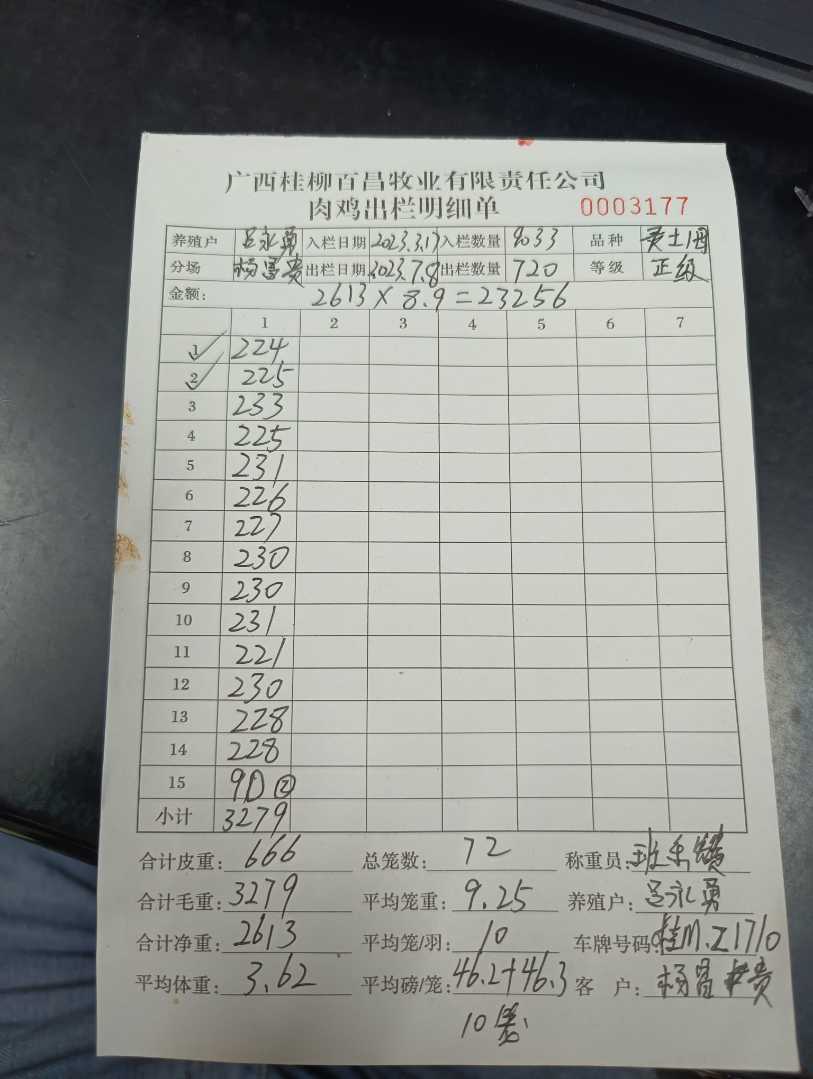 广西桂柳百昌牧业有限责任公司
肉鸡出栏明细单 0003177
养殖户 吕永勇 入栏日期 2023.3.17 入栏数量 9033 品种 黄土1号
分场 杨昌贵 出栏日期 2023.7.8 出栏数量 720 等级 正级
金额: 2613×8.9=23256
1 2 3 4 5 6 7
1 224
2 225
3 233
4 225
5 231
6 226
7 227
8 230
9 230
10 231
11 221
12 230
13 228
14 228
15 90 ②
小计 3279
合计皮重: 666 总笼数: 72 称重员: 班
合计毛重: 3279 平均笼重: 9.25 养殖户: 吕永勇
合计净重: 2613 平均笼/羽: 10 车牌号码: 桂M.Z1710
平均体重: 3.62 平均磅/笼: 46.2+46.3 客 户: 杨昌贵
10